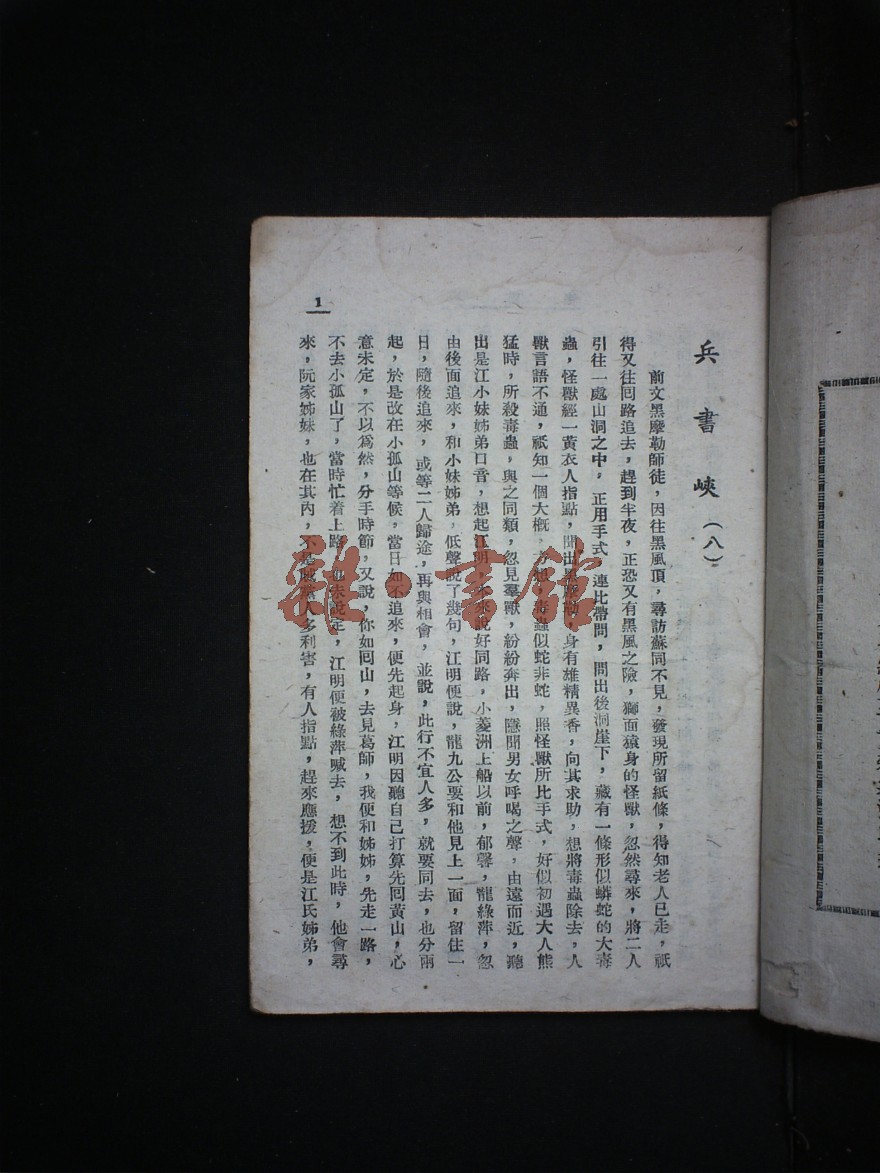 兵書峽（八）
前文黑摩勒師徒，因往黑風頂，尋訪蘇同不見，發現所留紙條，得知老人已走，祇
得又往回路追去，趕到半夜，正恐又有黑風之險，獅面猿身的怪獸，忽然尋來，將二人
引往一處山洞之中，正用手式，連比帶問，問出後洞崖下，藏有一條形似蟒蛇的大毒
蟲，怪獸經一黃衣人指點，聞出黑摩勒，身有雄精異香，向其求助，想將毒蟲除去，人
獸言語不通，祇知一個大概，毒蟲似蛇非蛇，照怪獸所比手式，好似初遇大人熊
猛時，所殺毒蟲，與之同類，忽見羣獸，紛紛奔出，隱聞男女呼喝之聲，由遠而近，聽
出是江小妹姊弟口音，想起江明，本來說好同路，小菱洲上船以前，郁馨，龍綠萍，忽
由後面追來，和小妹姊弟，低聲說了幾句，江明便說，龍九公要和他見上一面，留住一
日，隨後追來，或等二人歸途，再與相會，並說，此行不宜人多，就要同去，也分兩
起，於是改在小孤山等候，當日如不追來，便先起身，江明因聽自己打算先回黃山，心
意未定，不以爲然，分手時節，又說，你如回山，去見葛師，我便和姊姊，先走一路，
不去小孤山了，當時忙着上路，也未說定，江明便被綠萍喊去，想不到此時，他會尋
來，阮家姊妹，也在其內，不是賊黨人多利害，有人指點，趕來應援，便是江氏姊弟，
1
雜·書館